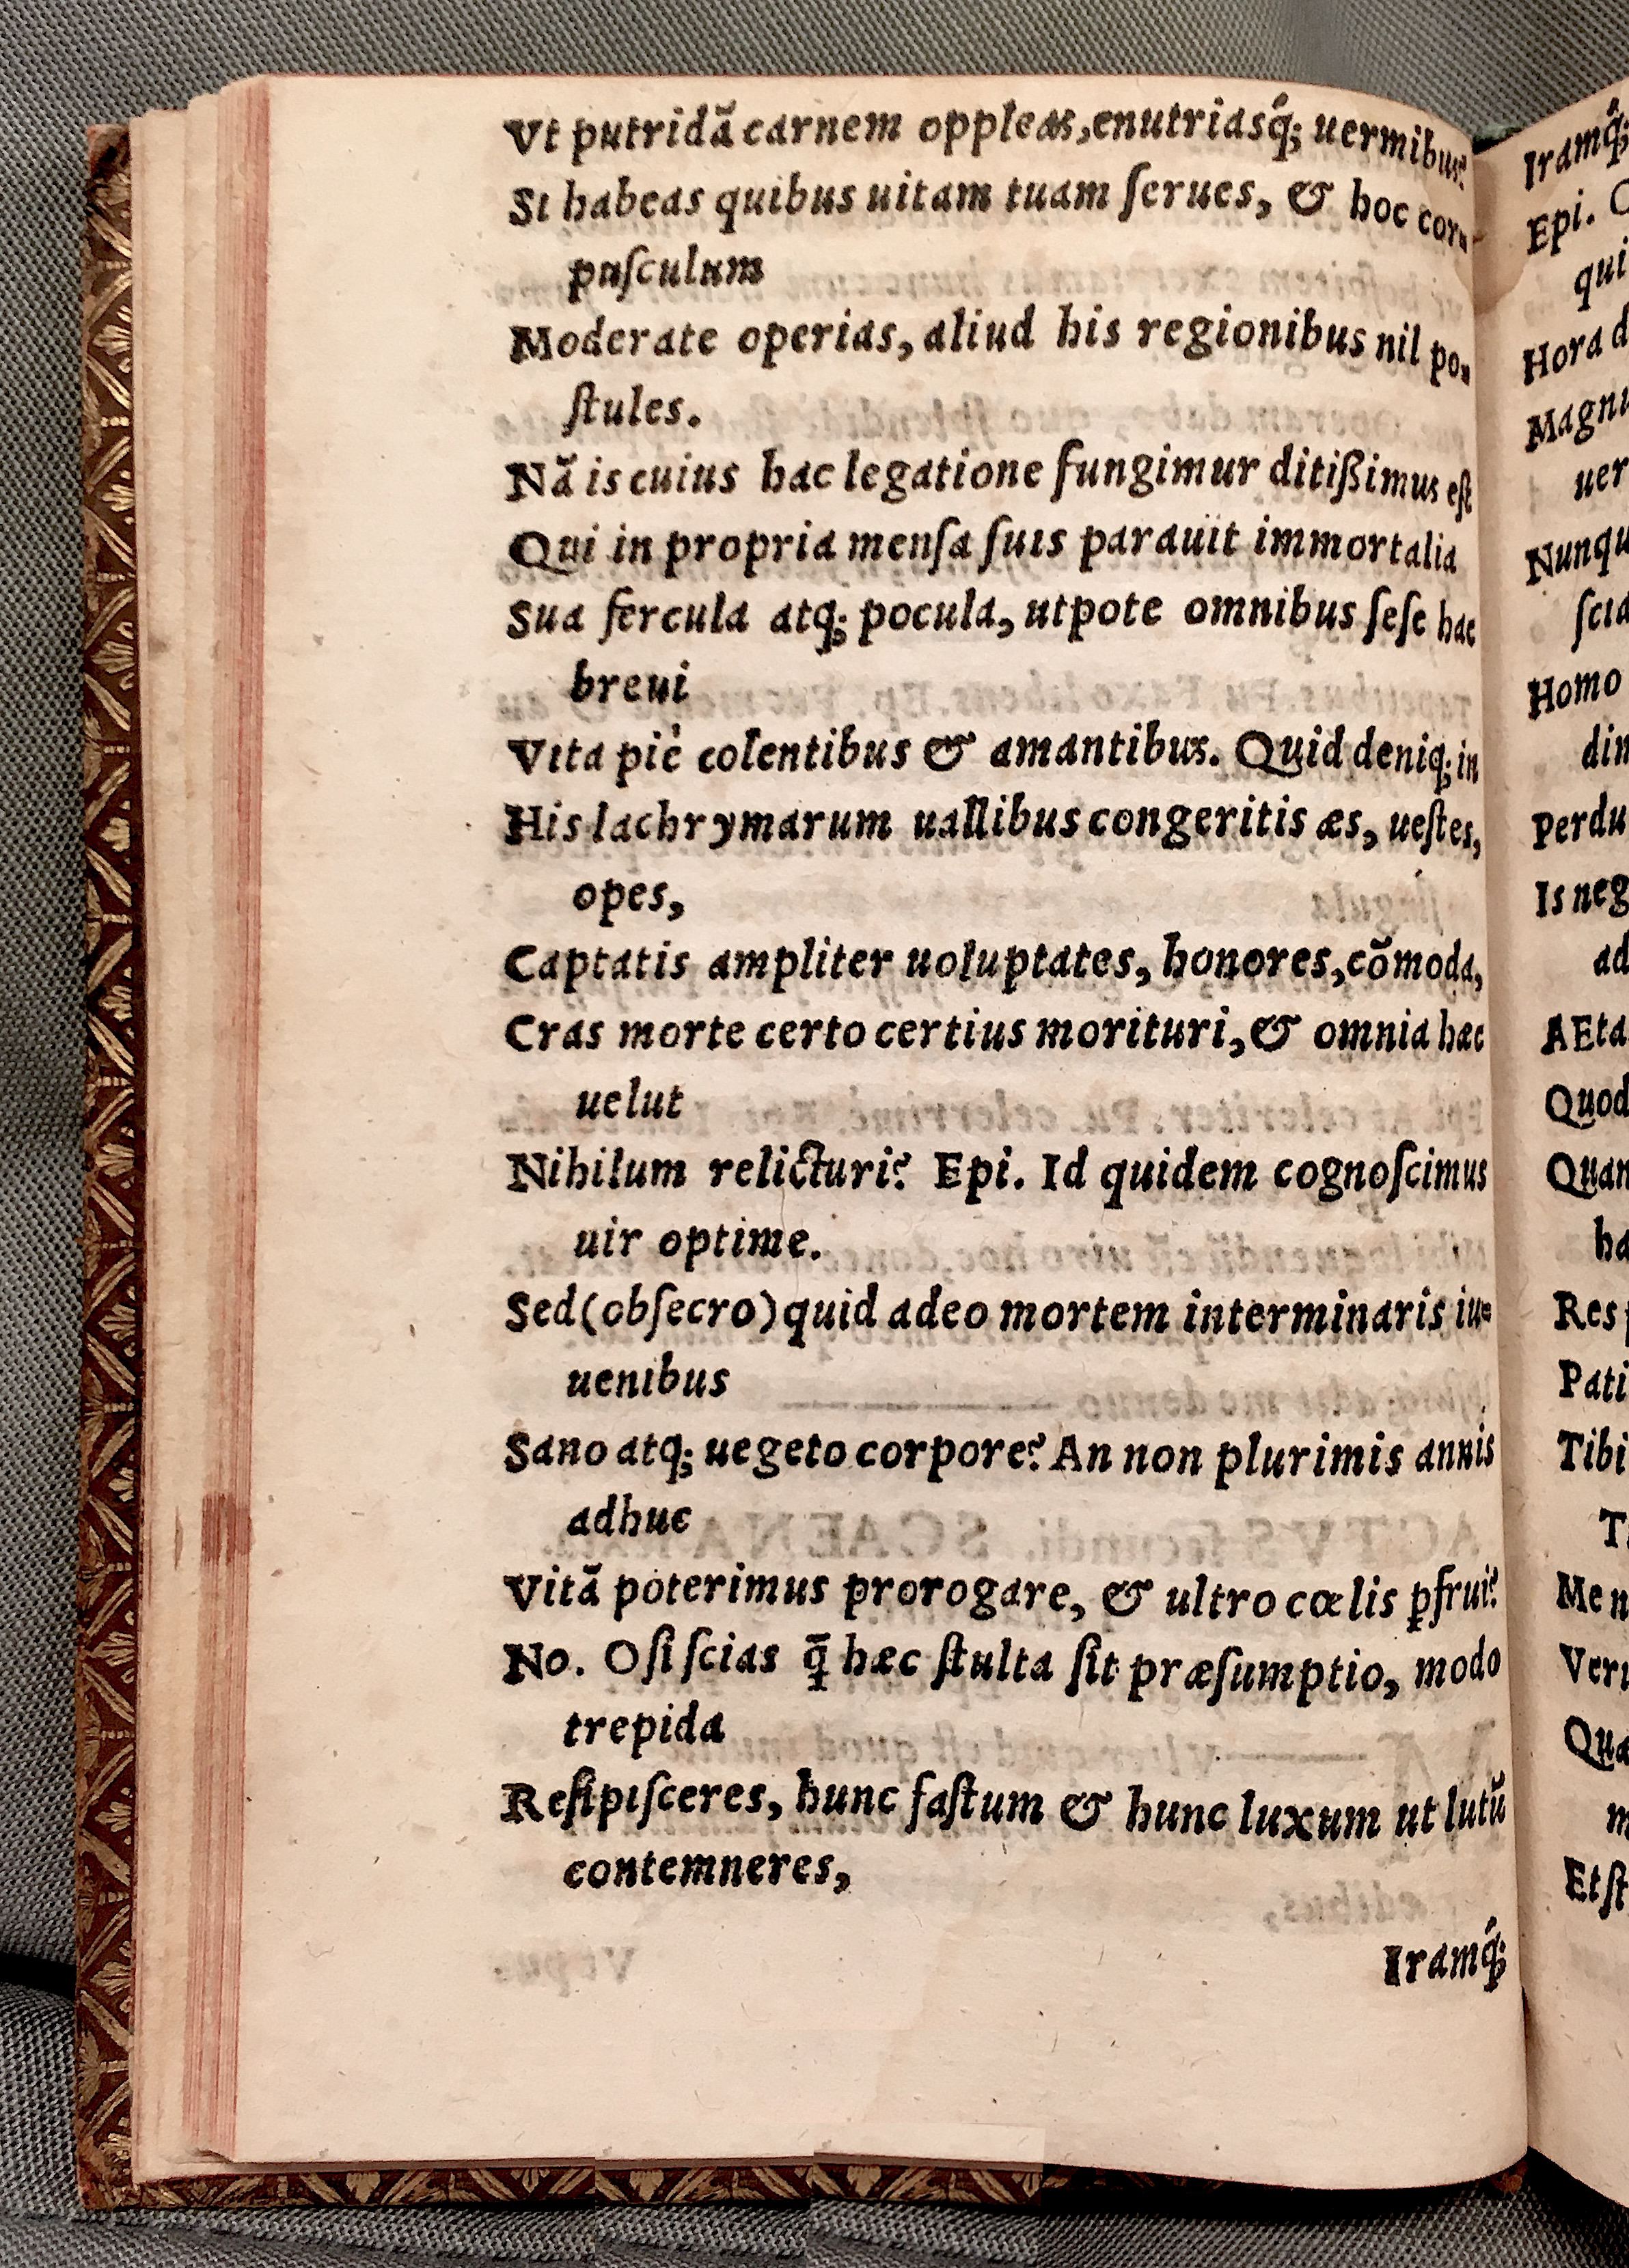 Vt putridã carnem oppleas, enutriasq́; uermibus?
Si habeas quibus uitam tuam ſerues, & hoc cor-
puſculum
Moderate operias, aliud his regionibus nil po-
ſtules.
Nã is cuius hac legatione fungimur ditißimus eſt
Qui in propria menſa ſuis parauit immortalia
Sua fercula atq; pocula, utpote omnibus ſeſe hac
breui
Vita piè colentibus & amantibus. Quid deniq; in
His lachrymarum uallibus congeritis æs, ueſtes,
opes,
Captatis ampliter uoluptates, honores, cõmoda,
Cras morte certo certius morituri, & omnia hæc
uelut
Nihilum relicturi? Epi. Id quidem cognoſcimus
uir optime.
Sed (obſecro) quid adeo mortem interminaris iu-
uenibus
Sano atq; uegeto corpore? An non plurimis annis
adhuc
Vitã poterimus prorogare, & ultro cœlis ꝑfrui?
No. O ſi ſcias q̄ hæc ſtulta ſit præſumptio, modo
trepida
Reſipiſceres, hunc faſtum & hunc luxum ut lutũ
contemneres,
Iramq́;
Iramq́;
Epi.
qui
Hora d
Magnu
uer
Nunqu
ſcia
Homo
dim
Perdu
Is neg
ad
AEta
Quod
Quan
ha
Res
Pati
Tibi
Me n
Veru
Qua
Et ſt